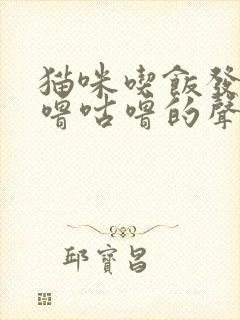 猫咪喫飯發
嚕咕嚕的聲
邱寶昌